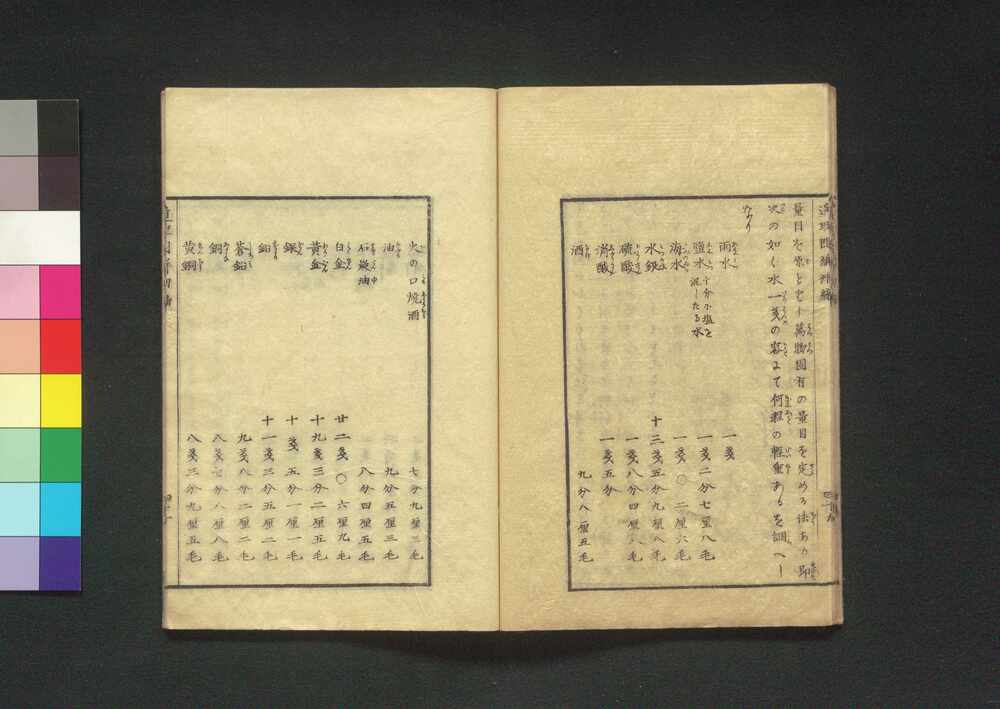 量目を原として萬物固有の量目を定める法あり即
次の如く水一戔の容にて何程の軽重あるを調べし
なり
雨水 一戔
塩水 十分小塩を混したる水 一戔二分七厘八毛
海水 一戔〇二厘六毛
水銀 十三戔五分九厘八毛
硫酸 一戔八分四厘
消酸 一戔五分
酒 九分八厘五毛
火の口焼酒 七分九厘三毛
油 九分五厘三毛
石炭油 八分四厘五毛
白金 廿二戔〇六厘九毛
黄金 十九戔三分二厘五毛
銀 十戔五分一厘一毛
鉛 十一戔三分五厘二毛
蒼鉛 九戔八分二厘二毛
銅 八戔分八厘八毛
黄銅 八戔三分九厘五毛